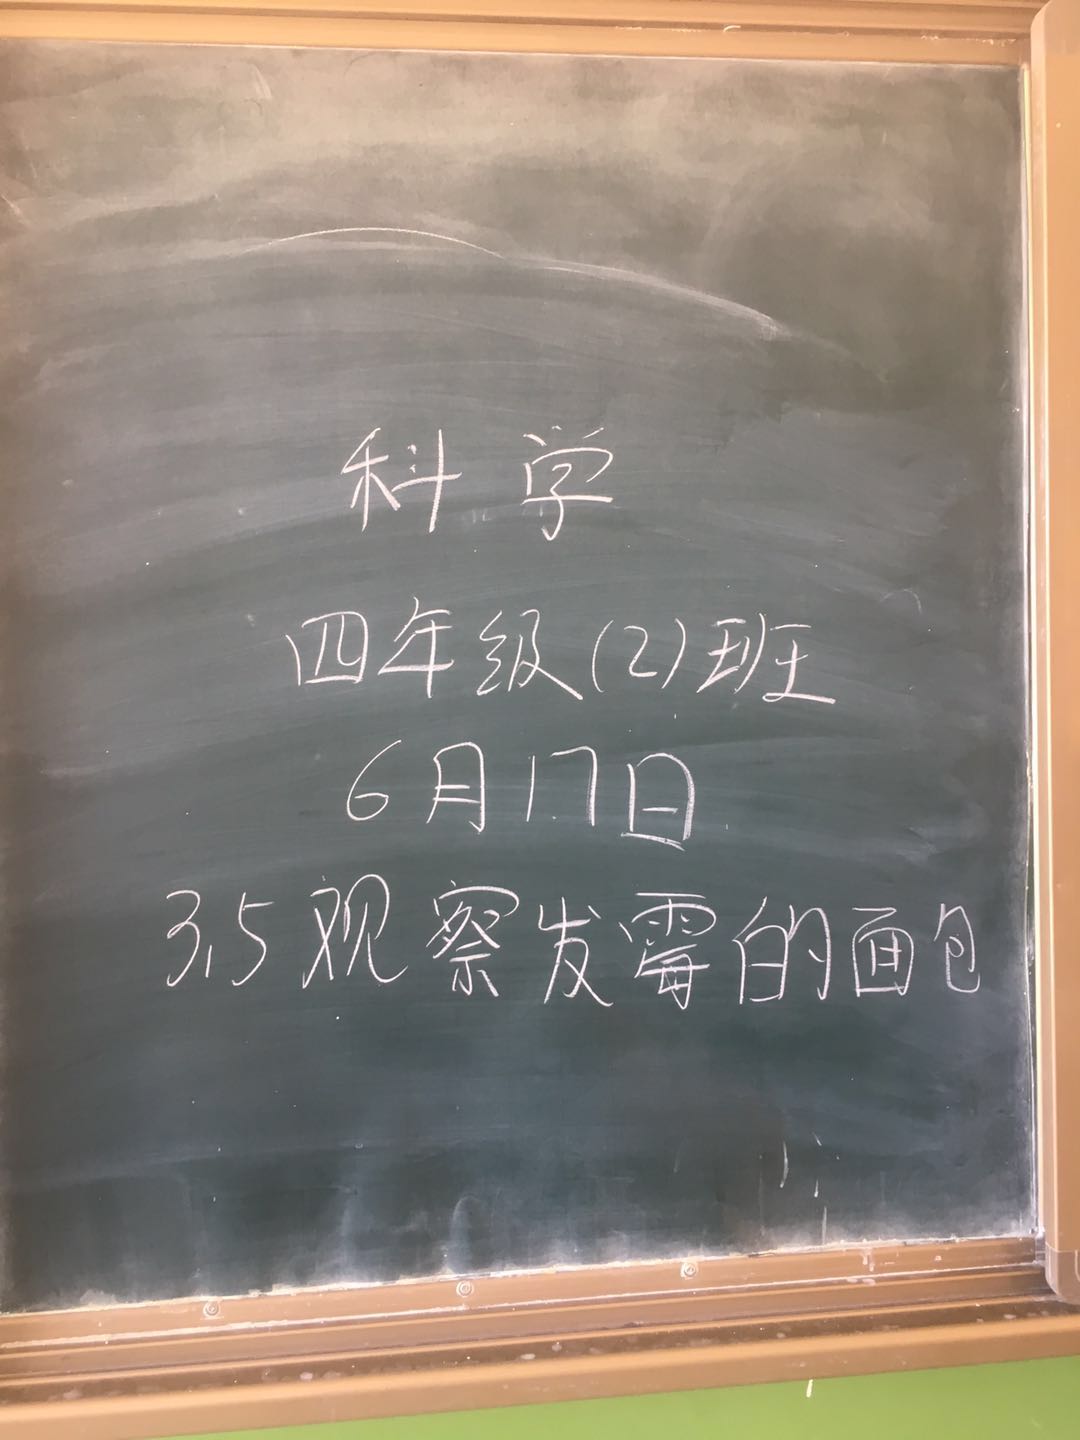 科学
四年级(2)班
6月17日
3.5观察发霉的面包